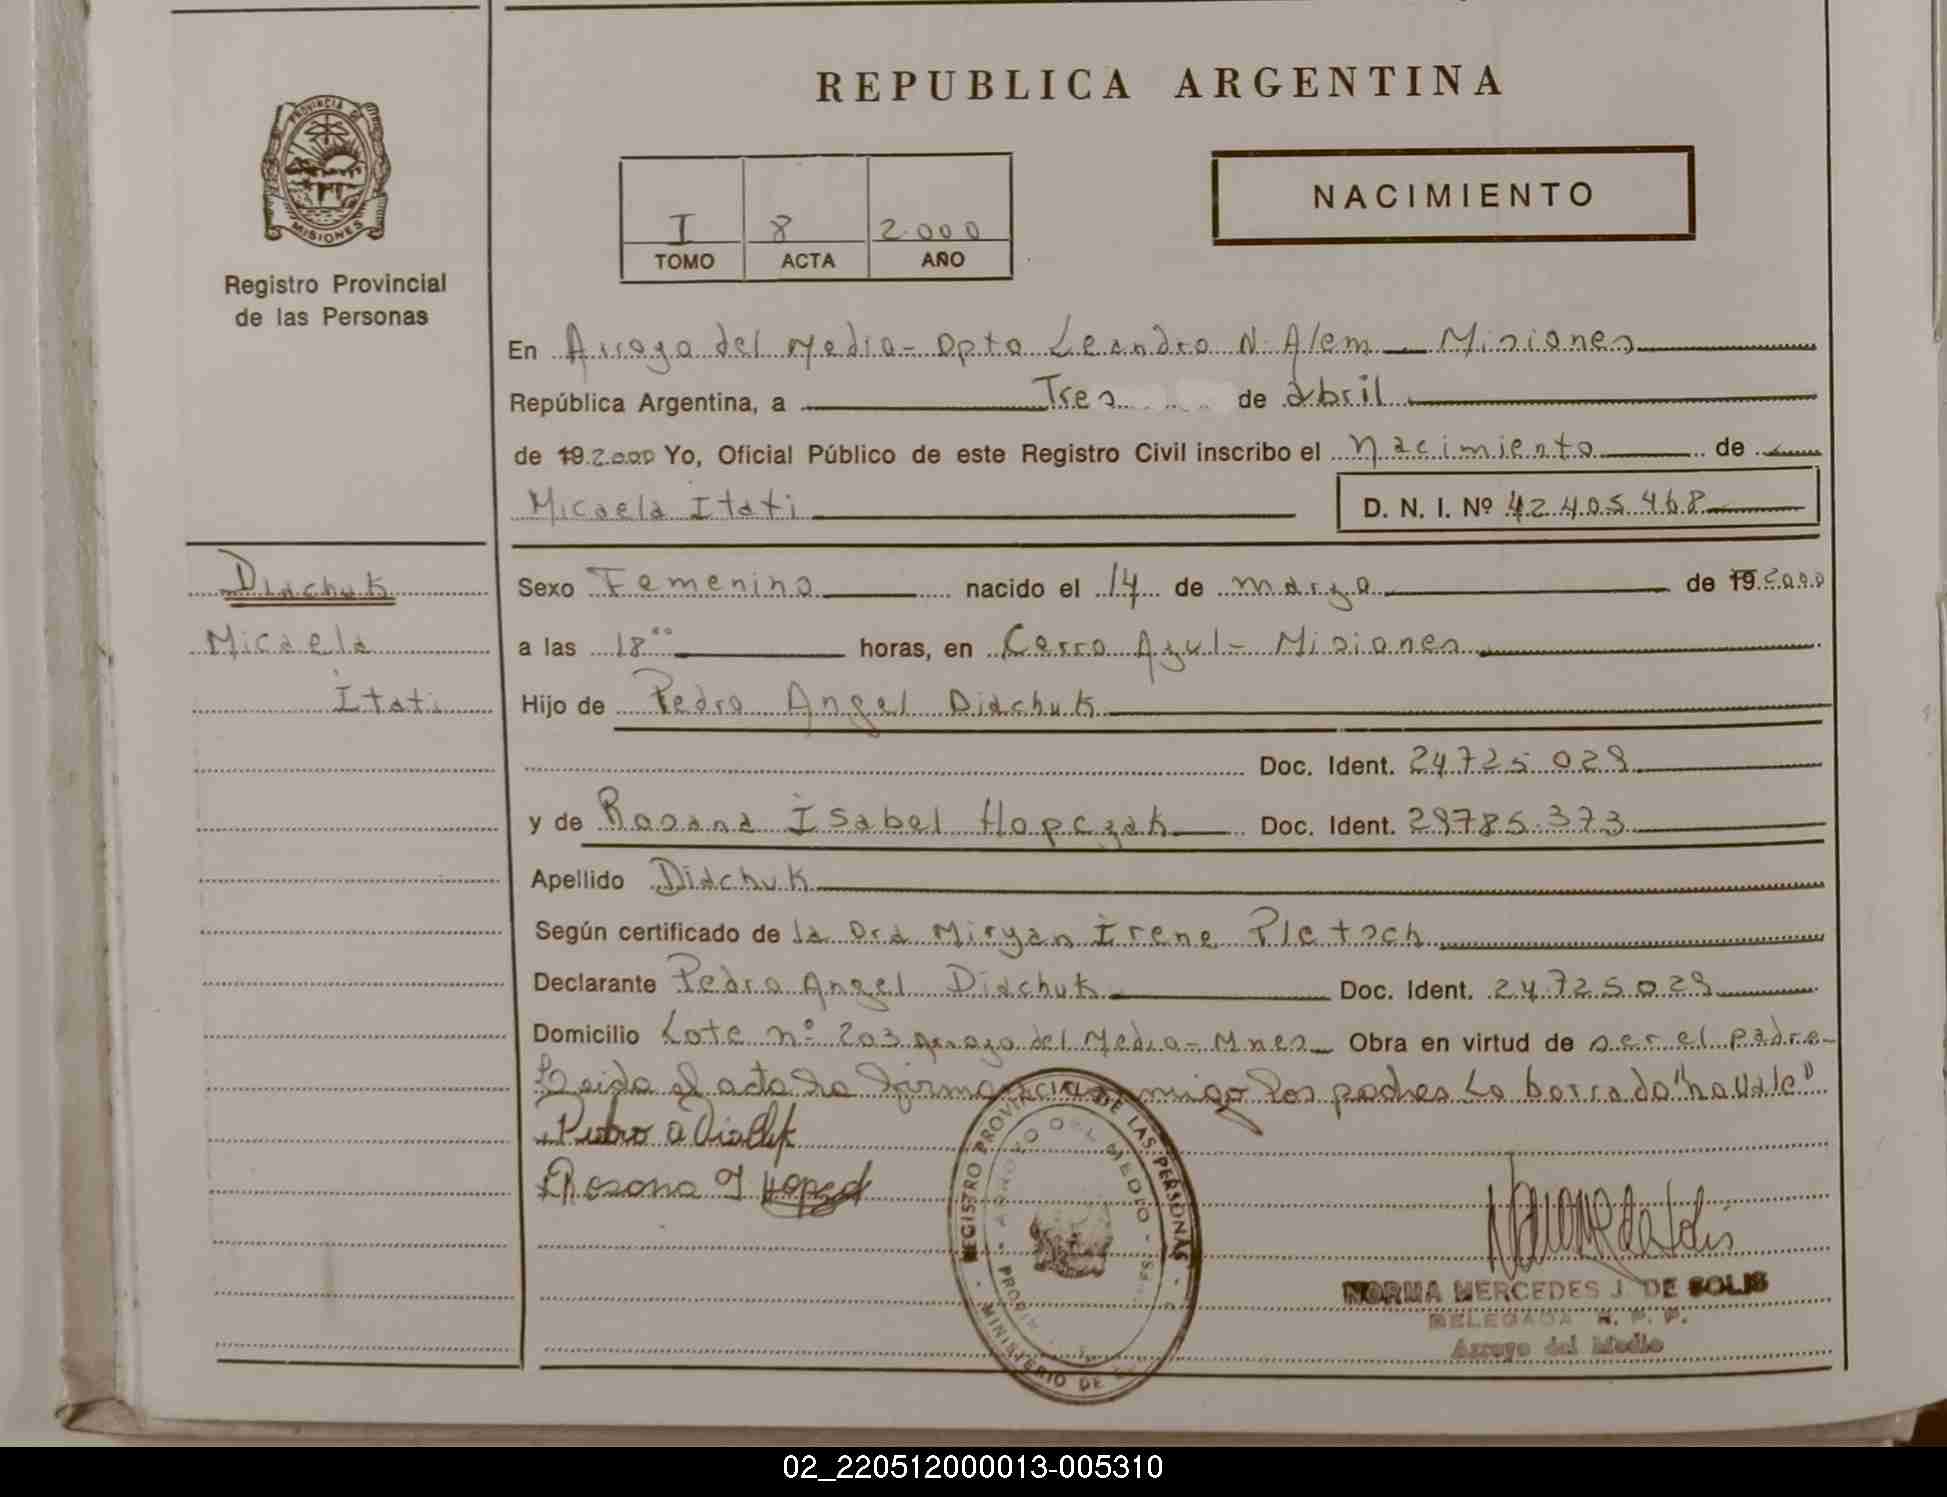 REPUBLICA ARGENTINA
PROVINCIA DE
MISIONES
Registro Provincial
de las Personas
I 8 2.000
TOMO ACTA AÑO
NACIMIENTO
En Arroyo del Medio - Dpto Leandro N. Alem - Misiones
República Argentina, a Tres de abril
de 19 2.000 Yo, Oficial Público de este Registro Civil inscribo el Nacimiento de
Micaela Itati D. N. I. Nº 42.405.468
Diachuk
Micaela
Itati
Sexo Femenino nacido el 14 de marzo de 19 2.000
a las 18°° horas, en Cerro Azul - Misiones
Hijo de Pedro Angel Diachuk
Doc. Ident. 24.725.029
y de Rosana Isabel Hopczak Doc. Ident. 29.785.373
Apellido Diachuk
Según certificado de la Dra Miryan Irene Pletsch
Declarante Pedro Angel Diachuk Doc. Ident. 24.725.029
Domicilio Lote nº 203 Arroyo del Medio - Mnes Obra en virtud de ser el padre -
Leida el acta la firman conmigo los padres Lo borrado "no vale"
Pedro A Diachuk
Rosana I Hopczak
REGISTRO PROVINCIAL DE LAS PERSONAS
ARROYO DEL MEDIO
MINISTERIO DE
NORMA MERCEDES J. DE SOLIS
DELEGADA R. P. P.
Arroyo del Medio
02_220512000013-005310